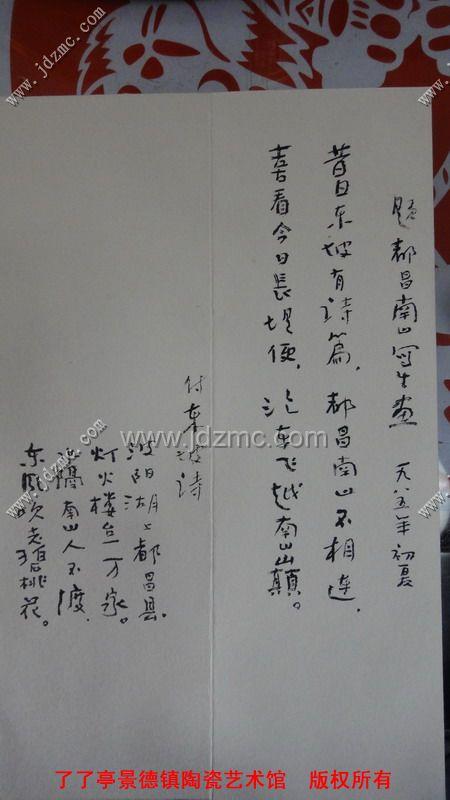 题都昌南山写生画 一九八五年初夏
昔日东坡有诗篇，都昌南山不相连，
喜看今日长堤便，汽车飞越南山山巅。
付东坡诗
波阳湖上都昌县，
灯火楼台一万家。
水隔南山人不渡，
东风吹老碧桃花。
www.jdzmc.com
了了亭景德镇陶瓷艺术馆 版权所有